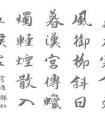 風御柳斜日
暮漢宮傳蠟
燭輕煙散入
五侯家